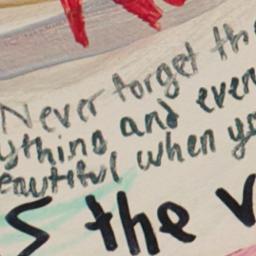 Never forget th
ything and even
eautiful when yo
S the v